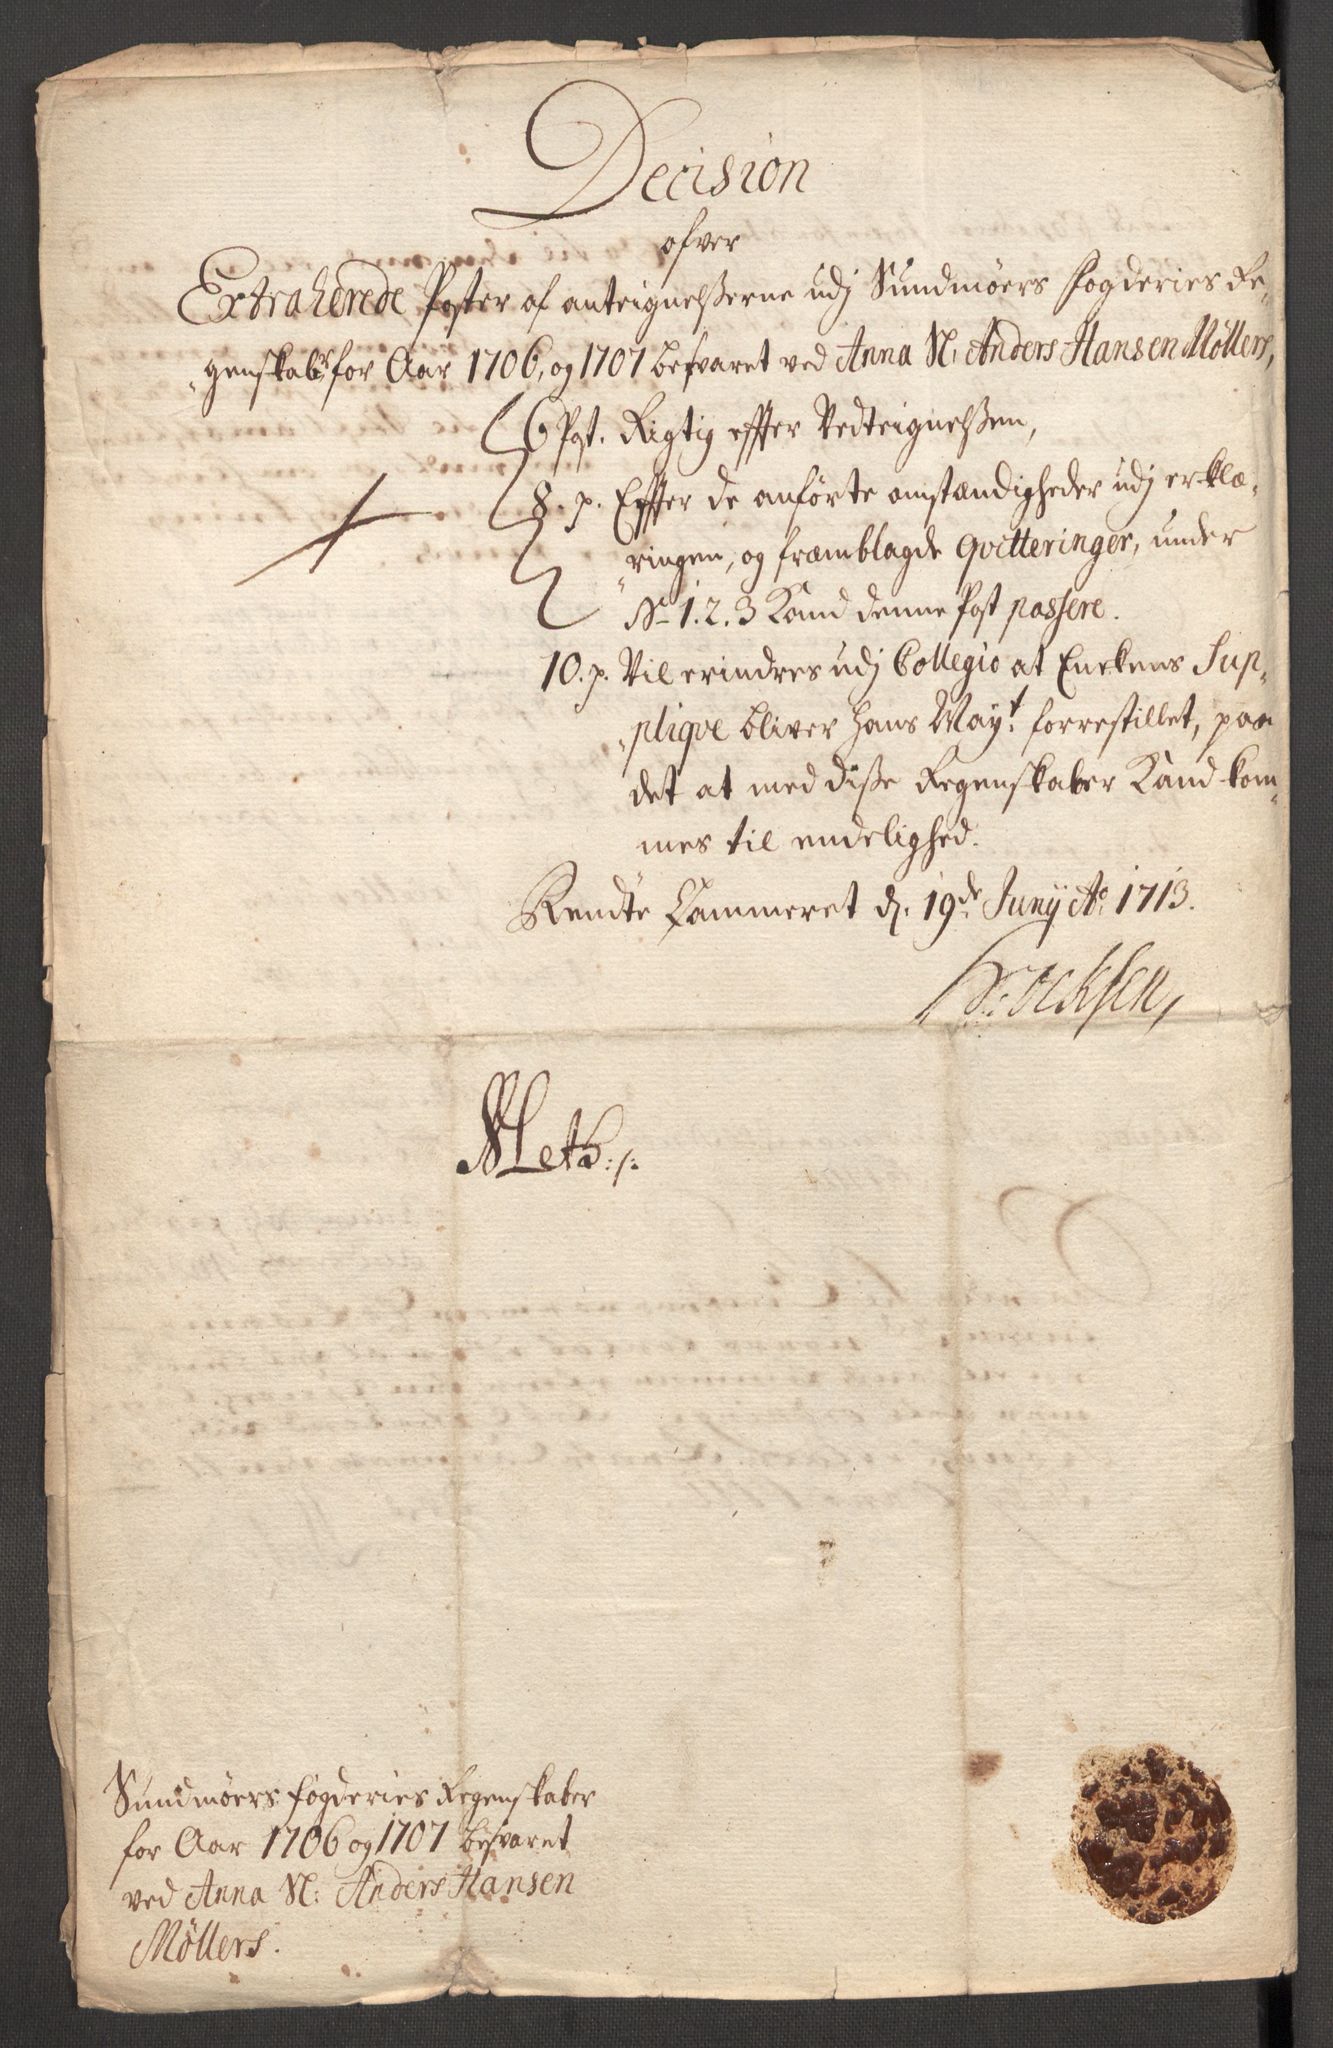 Decision
ofver
Extraherede Poster af anteignelßerne udj Sundmøers fogderies Re-
genskabr for Aar 1706, og 1707 besvaret ved Anna Sl: Anders Hansen Møllers,
6 Post. Rigtig effter Vedteignelßen,
8. p. Effter de anførte omstændigheder udj erklæ-
ringen, og fræmblagde qvitteringer, under
No 1. 2. 3 Kand denne Post passere.
10. p. Vil erindres udj Collegio at Enckens Sup-
pliqve bliver Hans Mayt: forrestillet, paa
det at med diße Regenskaber Kand kom-
mes til endelighed.
Rendte Cammeret d: 19de Junij Ao 1713.
Sundmøers fogderies Regenskaber
for Aar 1706 og 1707 besvaret
ved Anna Sl: Anders Hansen
Møllers.